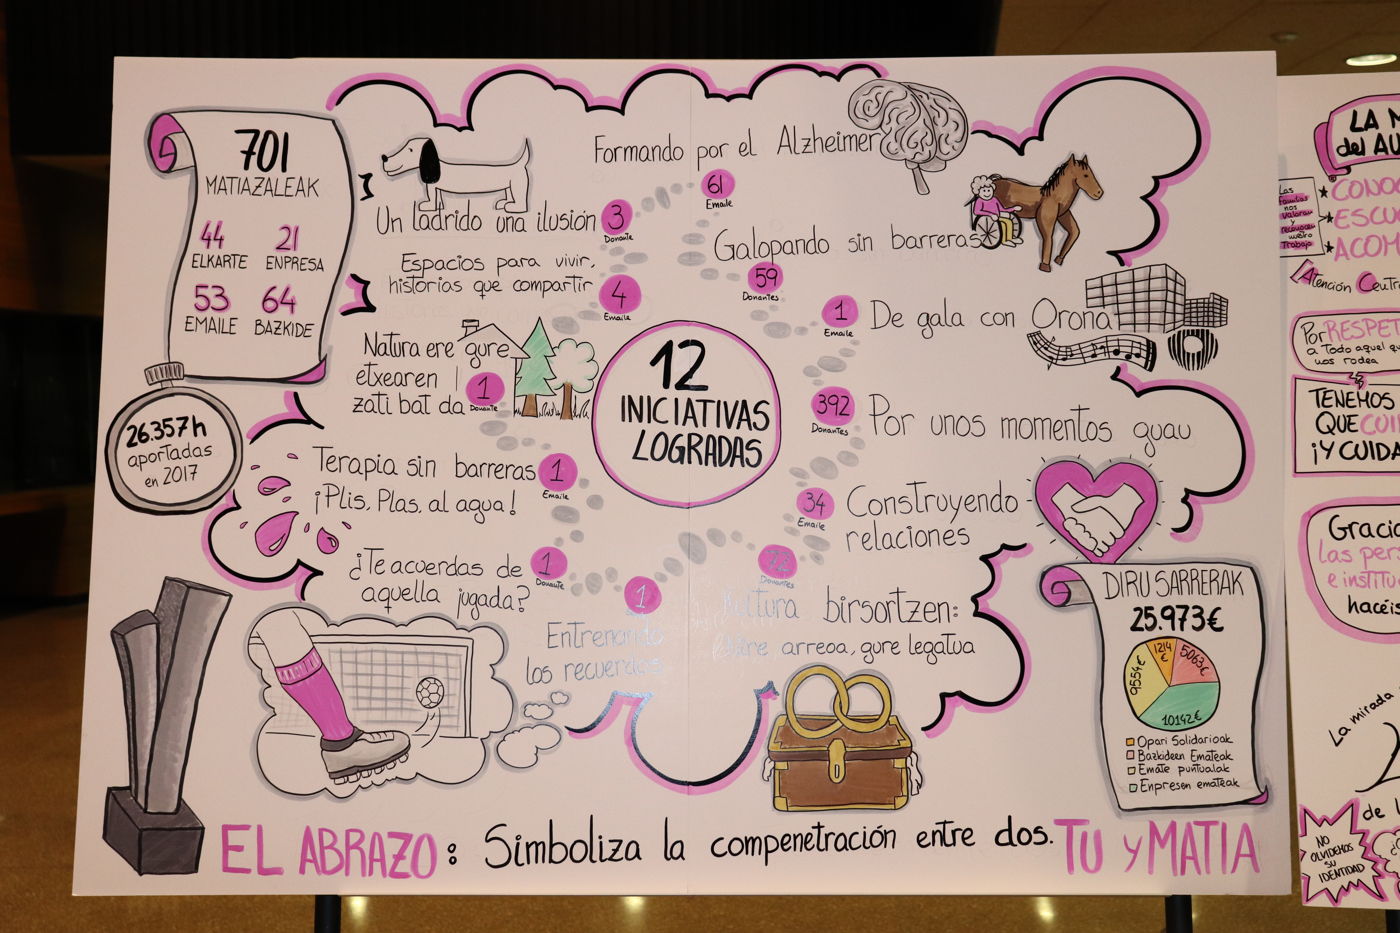 701
MATIAZALEAK
44
ELKARTE
21
ENPRESA
53
EMAILE
64
BAZKIDE
26.357h
aportadas
en 2017
Formando por el Alzheimer
61
Emaile
Un ladrido una ilusión
3
Donante
Galopando sin barreras
59
Donantes
Espacios para vivir,
historias que compartir
4
Emaile
De gala con Orona
1
Emaile
Natura ere gure
etxearen
zati bat da
1
Donante
12
INICIATIVAS
LOGRADAS
392
Donantes
Por unos momentos guau
Terapia sin barreras
¡Plis, Plas, al agua!
1
Emaile
34
Emaile
Construyendo
relaciones
¿Te acuerdas de
aquella jugada?
1
Donante
1
Entrenando
los recuerdos
22
Donantes
Kultura birsortzen:
arreoa, gure legatua
DIRU SARRERAK
25.973€
1214
€
5063€
9554€
10142€
Opari Solidarioak
Bazkideen Emateak
Emate puntualak
Enpresen emateak
EL ABRAZO: Simboliza la compenetración entre dos. TU y MATIA
LA
del AU
Las
Familias
nos
valoran
y
reconocen
nuestro
Trabajo
CONOC
ESCU
ACOM
Atención Centr
Por RESPET
a Todo aquel qu
nos rodea
TENEMOS
QUE CUI
¡Y CUIDA
Graci
las per
e institu
hacéis
La mirada
de l
NO
OLVIDEMOS
SU
IDENTIDAD